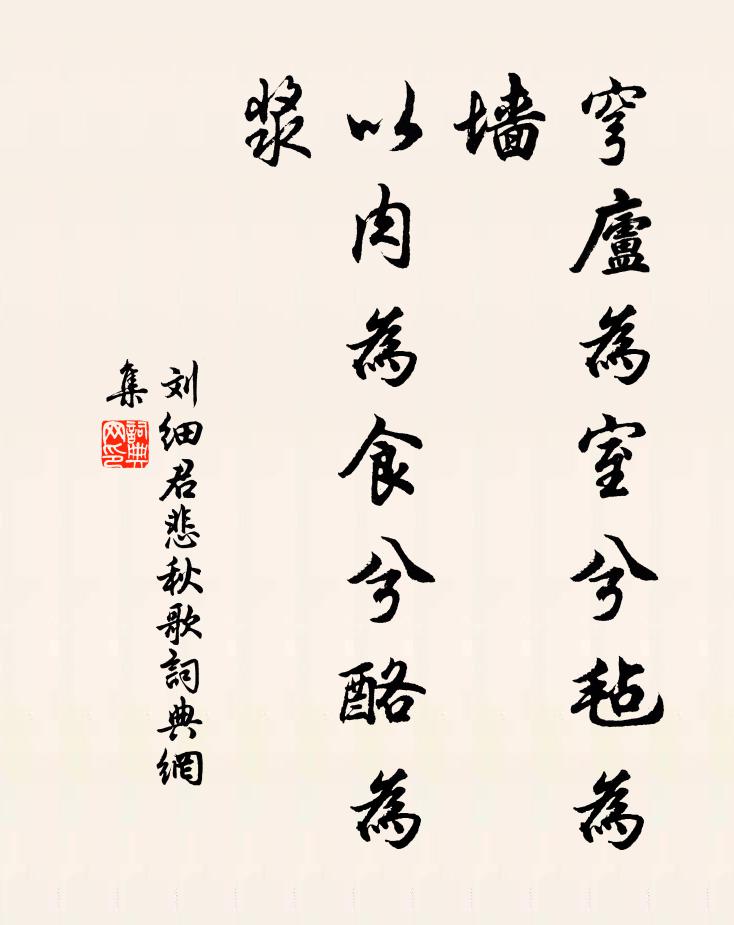 穹廬為室兮毡為
墙
以肉為食兮酪為
漿
刘细君悲秋歌詞典網
集
詞典
网印